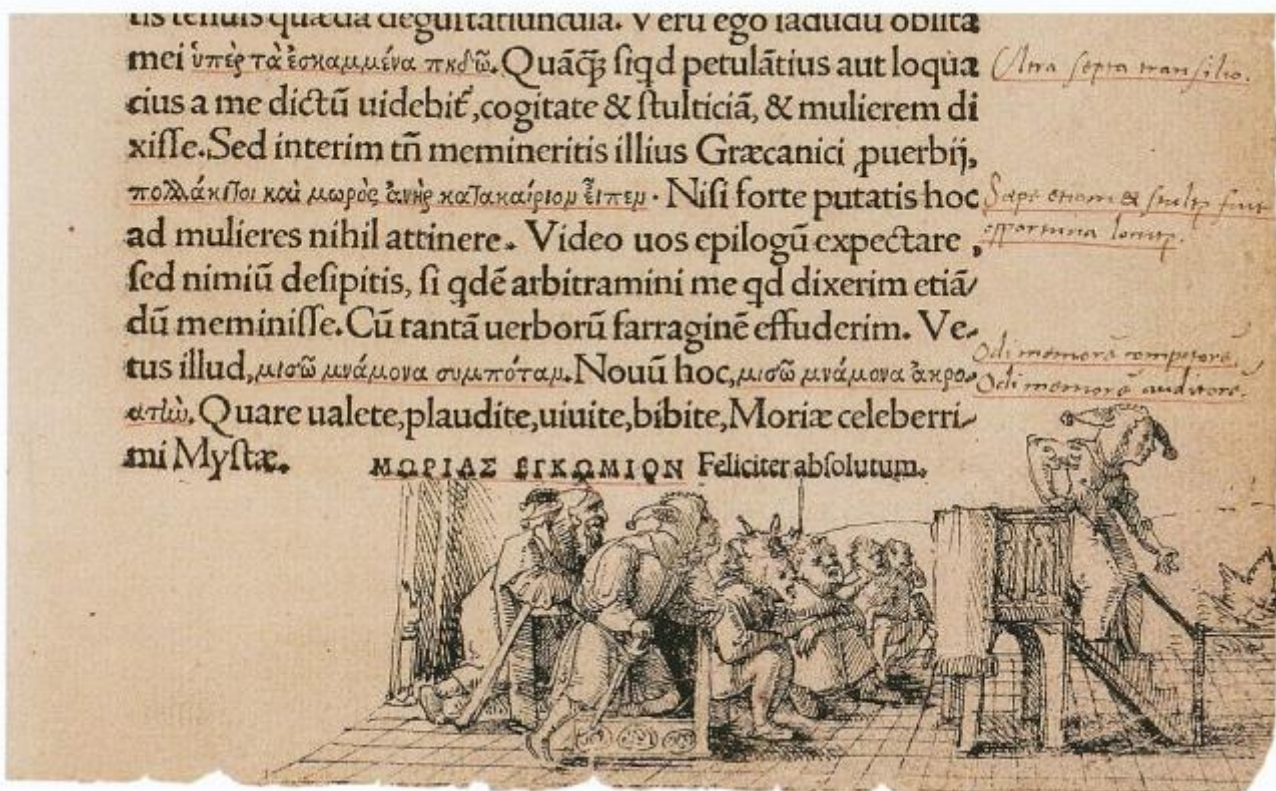 tis tenuis quædã degustatiuncula. Verũ ego iãdudũ oblita
mei ὑπὲρ τὰ ἐσκαμμένα πηδῶ. Quãq̃ꝫ siqd petulãtius aut loqua
cius a me dictũ uidebit̃, cogitate & stulticiã, & mulierem di
xisse. Sed interim tñ memineritis illius Græcanici ꝓuerbij,
πολλάκιτοι καὶ μωρὸς ἀνὴρ κατακαίριον εἶπεν. Nisi forte putatis hoc
ad mulieres nihil attinere. Video uos epilogũ expectare,
sed nimiũ desipitis, si qdẽ arbitramini me qd dixerim etiã/
dũ meminisse. Cũ tantã uerborũ farraginẽ effuderim. Ve/
tus illud, μισῶ μνάμονα συμπόταν. Nouũ hoc, μισῶ μνάμονα ἀκρο/
ατὴν. Quare ualete, plaudite, uiuite, bibite, Moriæ celeberri/
mi Mystæ.
ΜΩΡΙΑΣ ΕΓΚΩΜΙΟΝ Feliciter absolutum.
Ultra septa transilio.
Sæpe etiam
opportuna
Odi memorẽ compotorẽ.
Odi memorẽ auditorẽ.